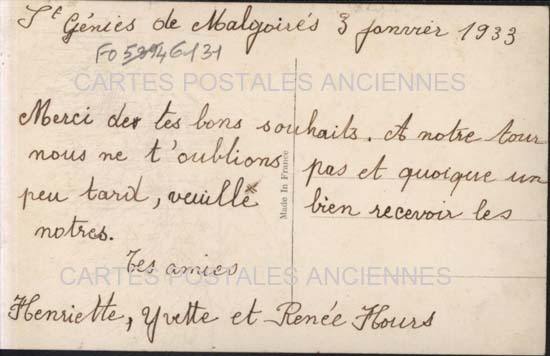 St Génies de Malgoirés 3 janvier 1933
CARTES POSTALES ANCIENNES
Merci de tes bons souhaits. A notre tour
nous ne t'oublions pas et quoique un
peu tard, veuille bien recevoir les
notres.
Made In France
Tes amies
CARTES POSTALES ANCIENNES
Henriette, Yvette et Renée Hours